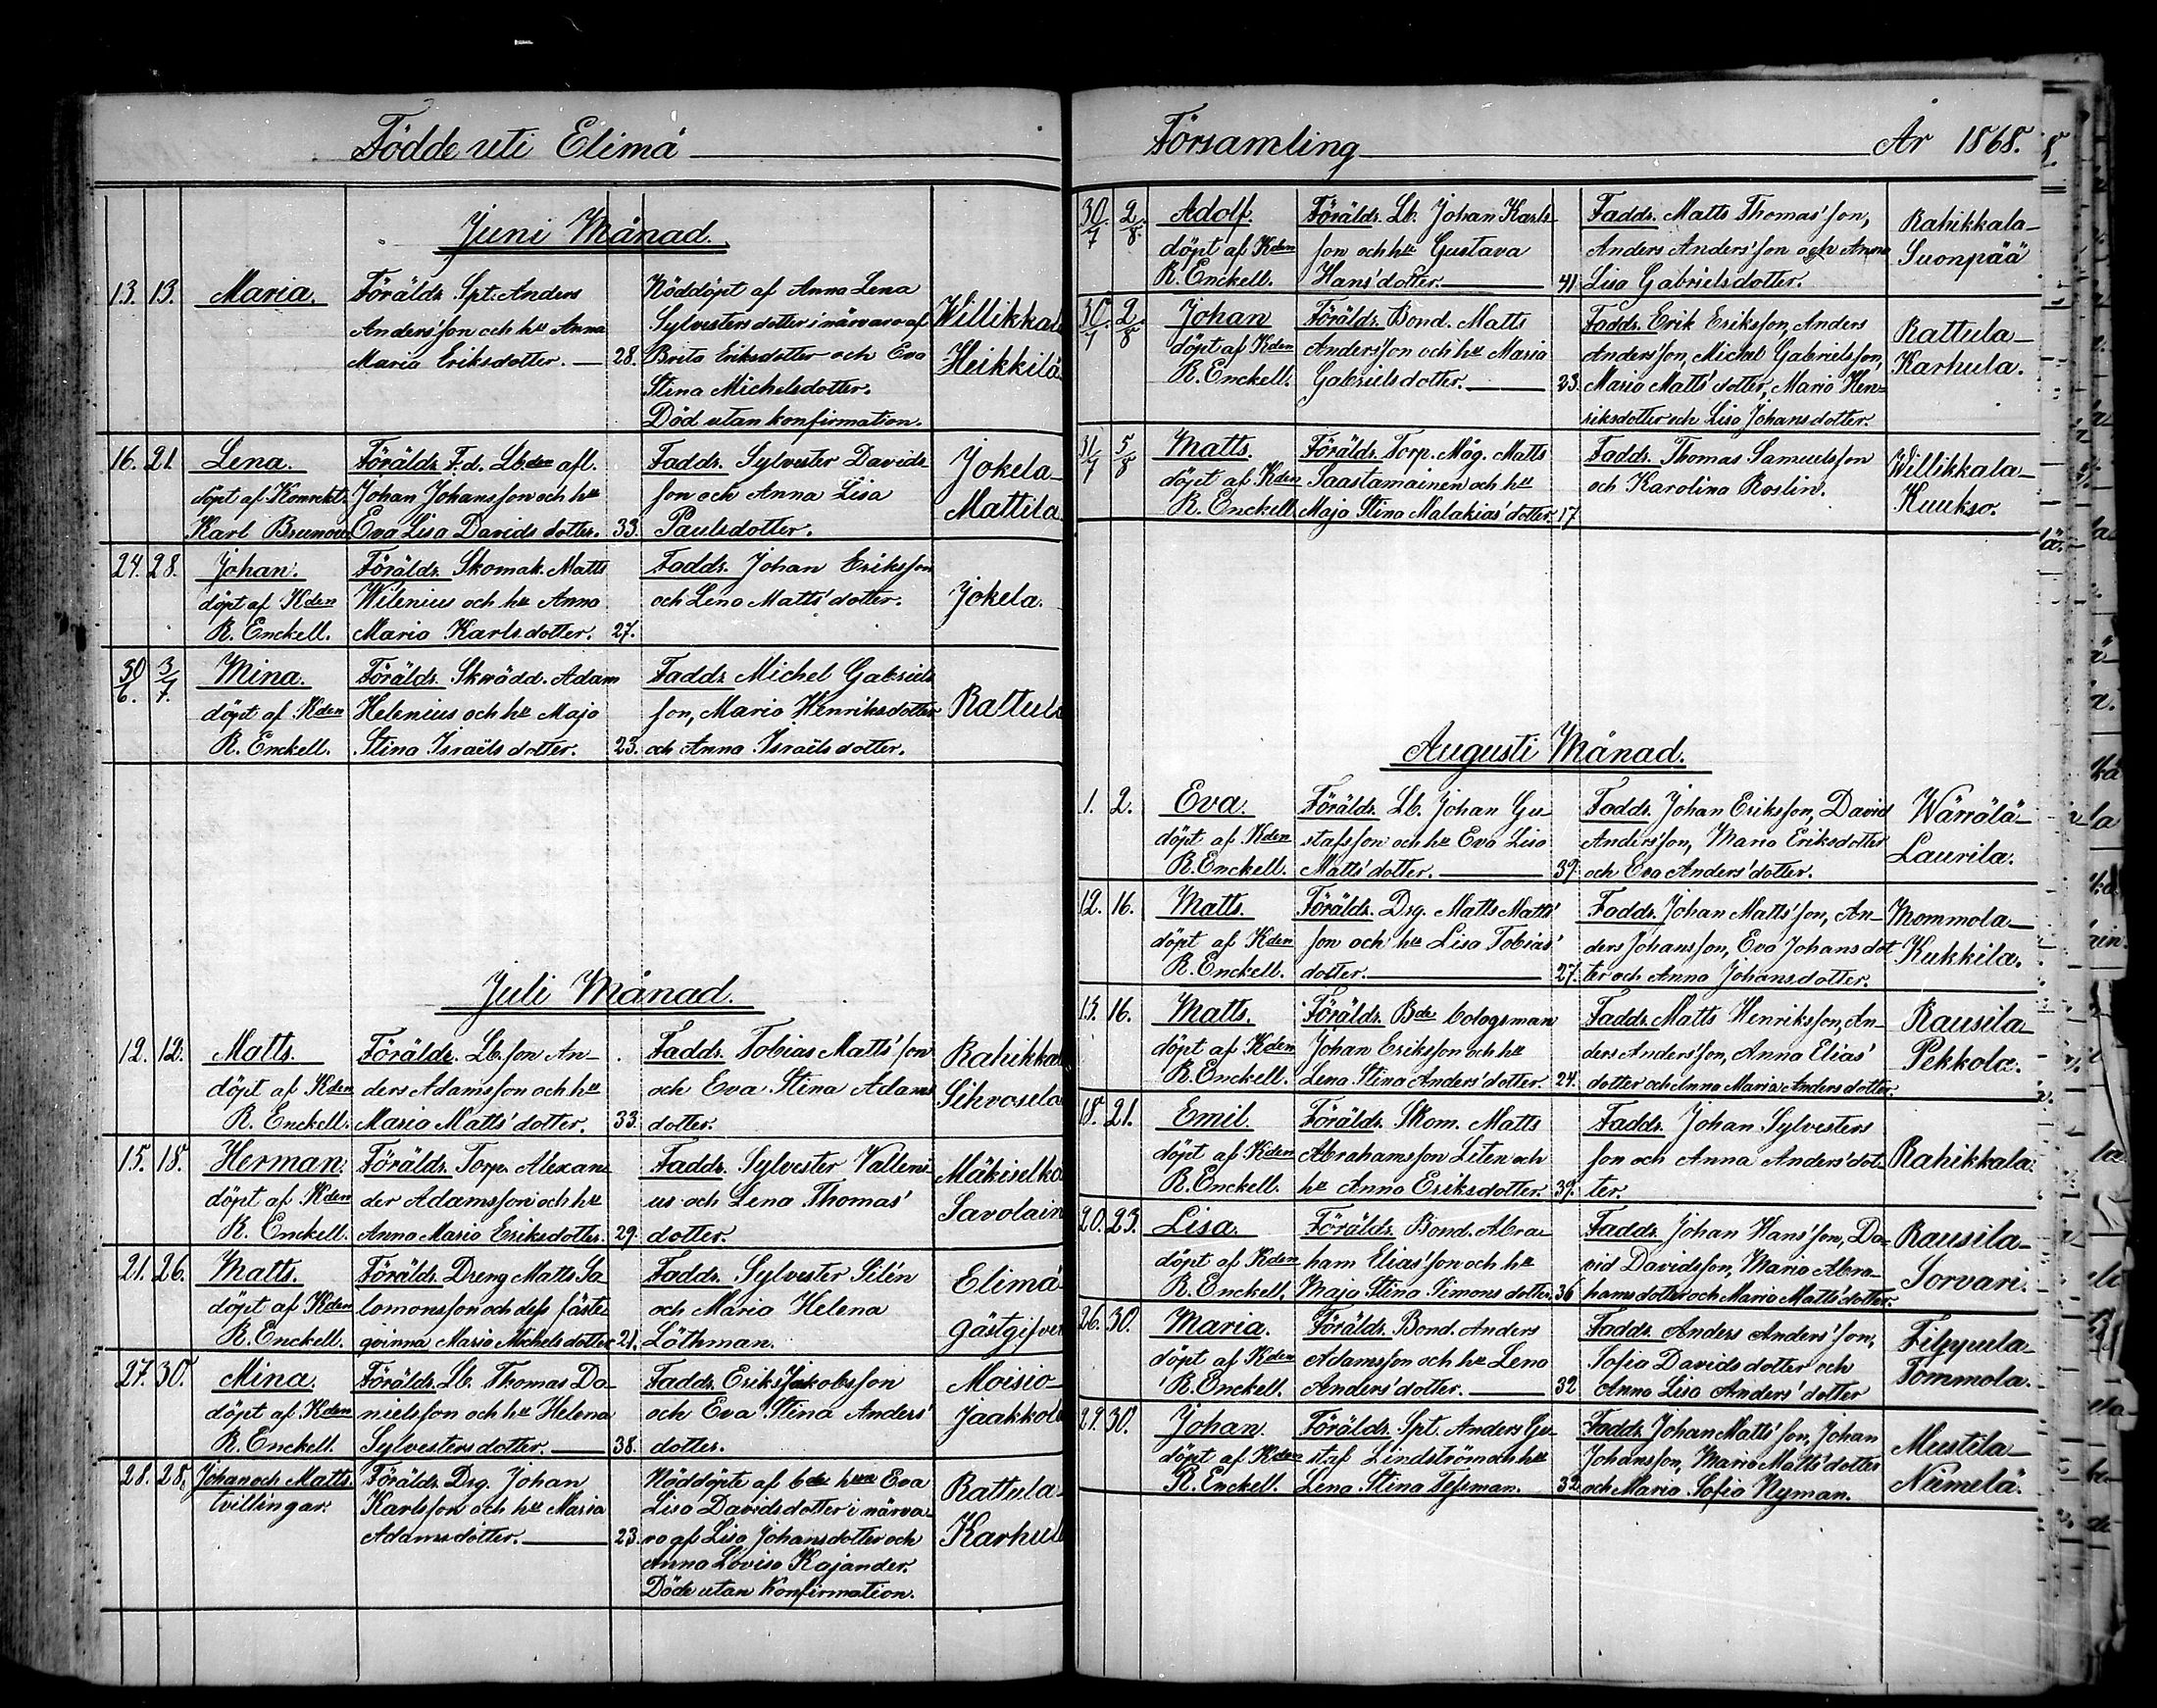 Födde uti Elimä
Juni Månad.
13. 13. Maria. Föräldr. Spt. Anders Nöddöpt af Anna Lena Willikkala
Anders'son och hu Anna Sylvesters dotter i närvaro af
Maria Eriksdotter. 28. Brita Eriksdotter och Eva Heikkilä
Stina Michelsdotter.
Död utan konfirmation.
16. 21. Lena. Föräldr. F.d. Lbden afl. Faddr. Sylvester Davids Jokela
döpt af Konrekt. Johan Johansson och hu son och Anna Lisa Mattila
Karl Eva Lisa Davids dotter. 33. Paulsdotter.
24. 28. Johan. Föräldr. Skomak. Matts Faddr. Johan Eriksson
döpt af Kden Wilenius och hu Anna och Lena Matts'dotter. Jokela.
R. Enckell. Maria Karlsdotter. 27.
30/6. 3/7. Mina. Föräldr. Skrädd. Adam Faddr. Michel Gabriels
döpt af Kden Helenius och hu Maja son, Maria Henriksdotter Rattula
R. Enckell. Stina Israëls dotter. 23. och Anna Israëls dotter.
Juli Månad.
12. 12. Matts. Föräldr. Lb. son An- Faddr. Tobias Matts'son Rahikkala
döpt af Kden ders Adamsson och hu och Eva Stina Adams Sihvosela
R. Enckell. Maria Matts'dotter. 33. dotter.
15. 18. Herman. Föräldr. Torp. Alexan Faddr. Sylvester Valleni Mäkiselkä
döpt af Kden der Adamsson och hu us och Lena Thomas' Savolain
R. Enckell. Anna Maria Eriksdotter. 29. dotter.
21. 26. Matts. Föräldr. Dreng Matts Sa- Faddr. Sylvester Silén Elimä
döpt af Kden lomonsson och dess fäste och Maria Helena
R. Enckell. qvinna Maria Michelsdotter 21. Löthman. gästgifveri
27. 30. Mina. Föräldr. Lb. Thomas Da- Faddr. Erik Jakobsson Moisio-
döpt af Kden nielsson och hu Helena och Eva Stina Anders' Jaakkola
R. Enckell. Sylvesters dotter. 38. dotter.
28. 28. Johan och Matts. Föräldr. Drg. Johan Nöddöpte af bde hun Eva Rattula
tvillingar. Karlsson och hu Maria Lisa Davidsdotter i närva-
Adamsdotter. 23. ro af Lisa Johansdotter och Karhula
Anna Lovisa Kajander.
Döde utan konfirmation.
Församling År 1868.
30/7 2/8. Adolf. Föräldr. Lb. Johan Karls- Faddr. Matts Thomas'son, Rahikkala-
döpt af Kden son och hu Gustava Anders Anders'son och Anna Suonpää
R. Enckell. Hans'dotter. 41 Lisa Gabrielsdotter.
30/7 2/8 Johan Föräldr. Bond. Matts Faddr. Erik Eriksson, Anders Rattula-
döpt af Kden Anders'son och hu Maria Anders'son, Michel Gabrielsson, Karhula.
R. Enckell. Gabrielsdotter. 23. Maria Matts'dotter, Maria Hen-
riksdotter och Lisa Johansdotter.
31/7 5/8 Matts. Föräldr. Torp. Måg. Matts Faddr. Thomas Samuelsson Willikkala-
döpt af Kden Saastamainen och hu och Karolina Roslin. Kuukso.
R. Enckell. Maja Stina Malakias'dotter. 17
Augusti Månad.
1. 2. Eva. Föräldr. Lb. Johan Gu- Faddr. Johan Eriksson, David Wärrälä-
döpt af Kden stafsson och hu Eva Lisa Anders'son, Maria Eriksdotter Laurila.
R. Enckell. Matts'dotter. 39. och Eva Anders'dotter.
12. 16. Matts. Föräldr. Drg. Matts Matts' Faddr. Johan Matts'son, An- Mommola-
döpt af Kden son och hu Lisa Tobias' ders Johansson, Eva Johans dot Kukkila.
R. Enckell. dotter. 27. ter och Anna Johansdotter.
15. 16. Matts. Föräldr. Bde bologsman Faddr. Matts Henriksson, An- Rausila-
döpt af Kden Johan Eriksson och hu ders Anders'son, Anna Elias' Pekkola.
R. Enckell. Lena Stina Anders'dotter. 24. dotter och Anna Maria Anders dotter.
18. 21. Emil. Föräldr. Skom. Matts Faddr. Johan Sylvesters
döpt af Kden Abrahamsson Liten och son och Anna Anders'dot- Rahikkala.
R. Enckell. hu Anna Eriksdotter. 39. ter.
20. 23. Lisa. Föräldr. Bond. Abra- Faddr. Johan Hans'son, Da- Rausila-
döpt af Kden ham Elias'son och hu vid Davidsson, Maria Abra- Sorvari.
R. Enckell. Maja Stina Simons dotter. 36 hamsdotter och Maria Matts'dotter.
26. 30. Maria. Föräldr. Bond. Anders Faddr. Anders Anders'son, Filppula-
döpt af Kden Adamsson och hu Lena Sofia Davids dotter och Tommola.
R. Enckell. Anders'dotter. 32 Anna Lisa Anders'dotter
29. 30. Johan. Föräldr. Spt. Anders Gu- Faddr. Johan Matts'son, Johan Mustila-
döpt af Kden staf Lindström och hu Johansson, Maria Matts'dotter Niemelä.
R. Enckell. Lena Stina Tessman. 32 och Maria Sofia Nyman.